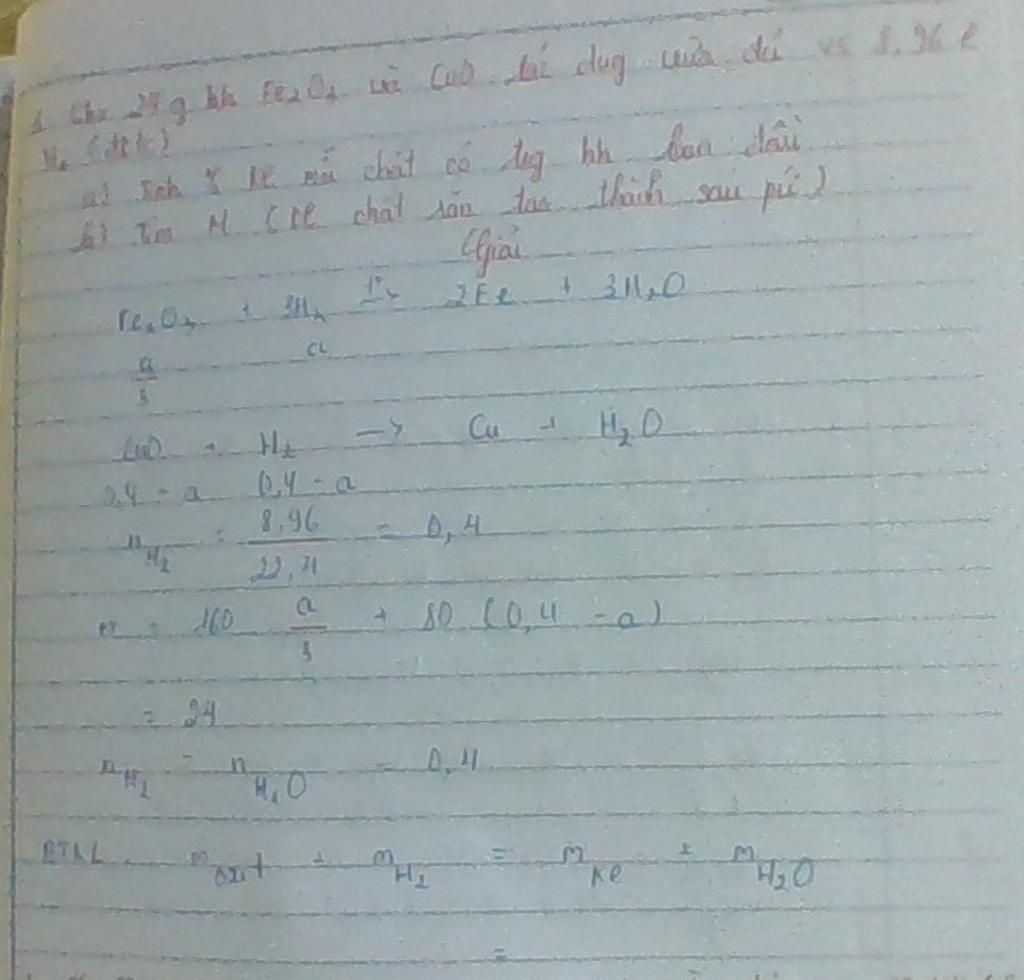 1 Cho 24 g hh Fe₂O₃ và CuO tác dụg vừa đủ vs 8,96 l
H₂ (đktc)
a) Tính % KL mỗi chất có tɾg hh ban đầu
b) Tìm M (KL chất rắn tạo thành sau pứ)
Giải
Fe₂O₃ + 3H₂ -t°-> 2Fe + 3H₂O
a/3 a
CuO + H₂ -> Cu + H₂O
0,4 - a 0,4 - a
n H₂ = 8,96 / 22,4 = 0,4
m = 160 a/3 + 80 (0,4 - a)
= 24
n H₂ = n H₂O = 0,4
BTKL m oxit + m H₂ = m KL + m H₂O
=